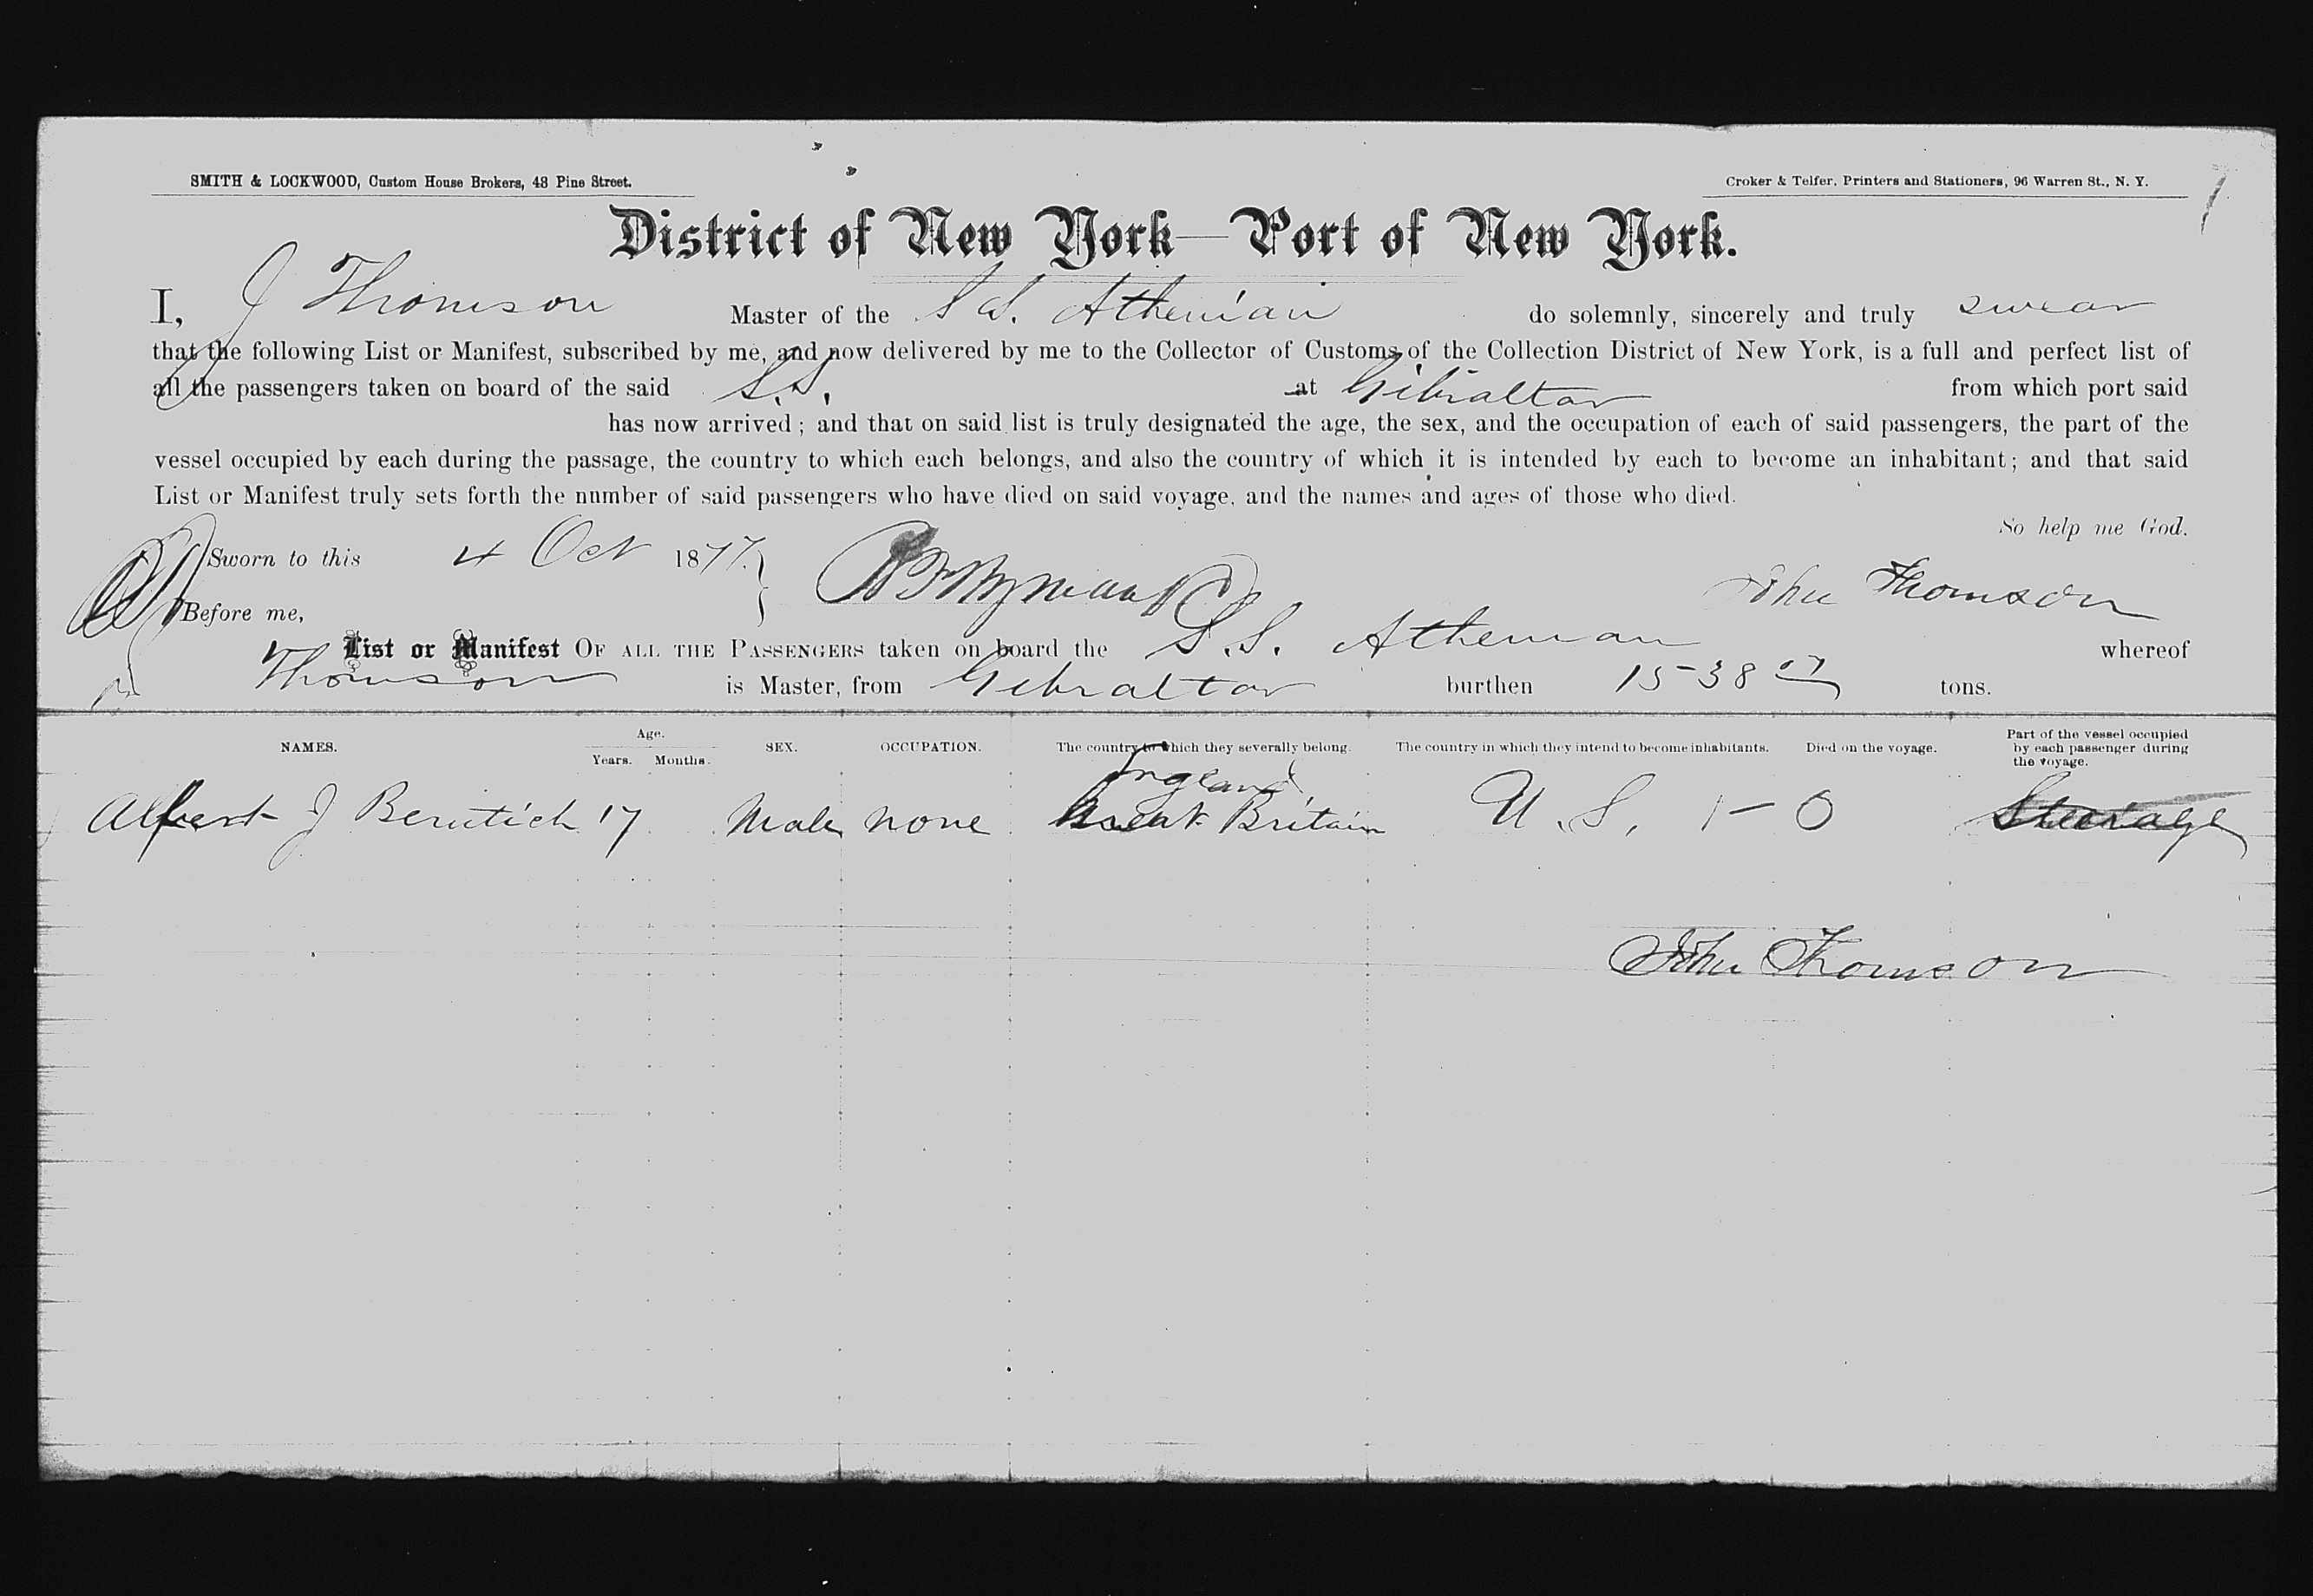 SMITH & LOCKWOOD, Custom House Brokers, 48 Pine Street.
Croker & Telfer, Printers and Stationers, 96 Warren St., N. Y.
District of New York—Port of New York.
I, J Thomson Master of the S S. Athenian do solemnly, sincerely and truly swear
that the following List or Manifest, subscribed by me, and now delivered by me to the Collector of Customs of the Collection District of New York, is a full and perfect list of
all the passengers taken on board of the said S.S. at Gibraltar from which port said
has now arrived; and that on said list is truly designated the age, the sex, and the occupation of each of said passengers, the part of the
vessel occupied by each during the passage, the country to which each belongs, and also the country of which it is intended by each to become an inhabitant; and that said
List or Manifest truly sets forth the number of said passengers who have died on said voyage, and the names and ages of those who died.
So help me God.
Sworn to this 4 Oct 1877.
John Thomson
Before me,
List or Manifest OF ALL THE PASSENGERS taken on board the S.S. Athenian whereof
Thomson is Master, from Gibraltar burthen 1538 tons.
NAMES. Age. Years. Months. SEX. OCCUPATION. The country to which they severally belong. The country in which they intend to become inhabitants. Died on the voyage. Part of the vessel occupied by each passenger during the voyage.
England
Albert J Berutich 17 Male none Great Britain U.S. 1-0 Steerage
John Thomson